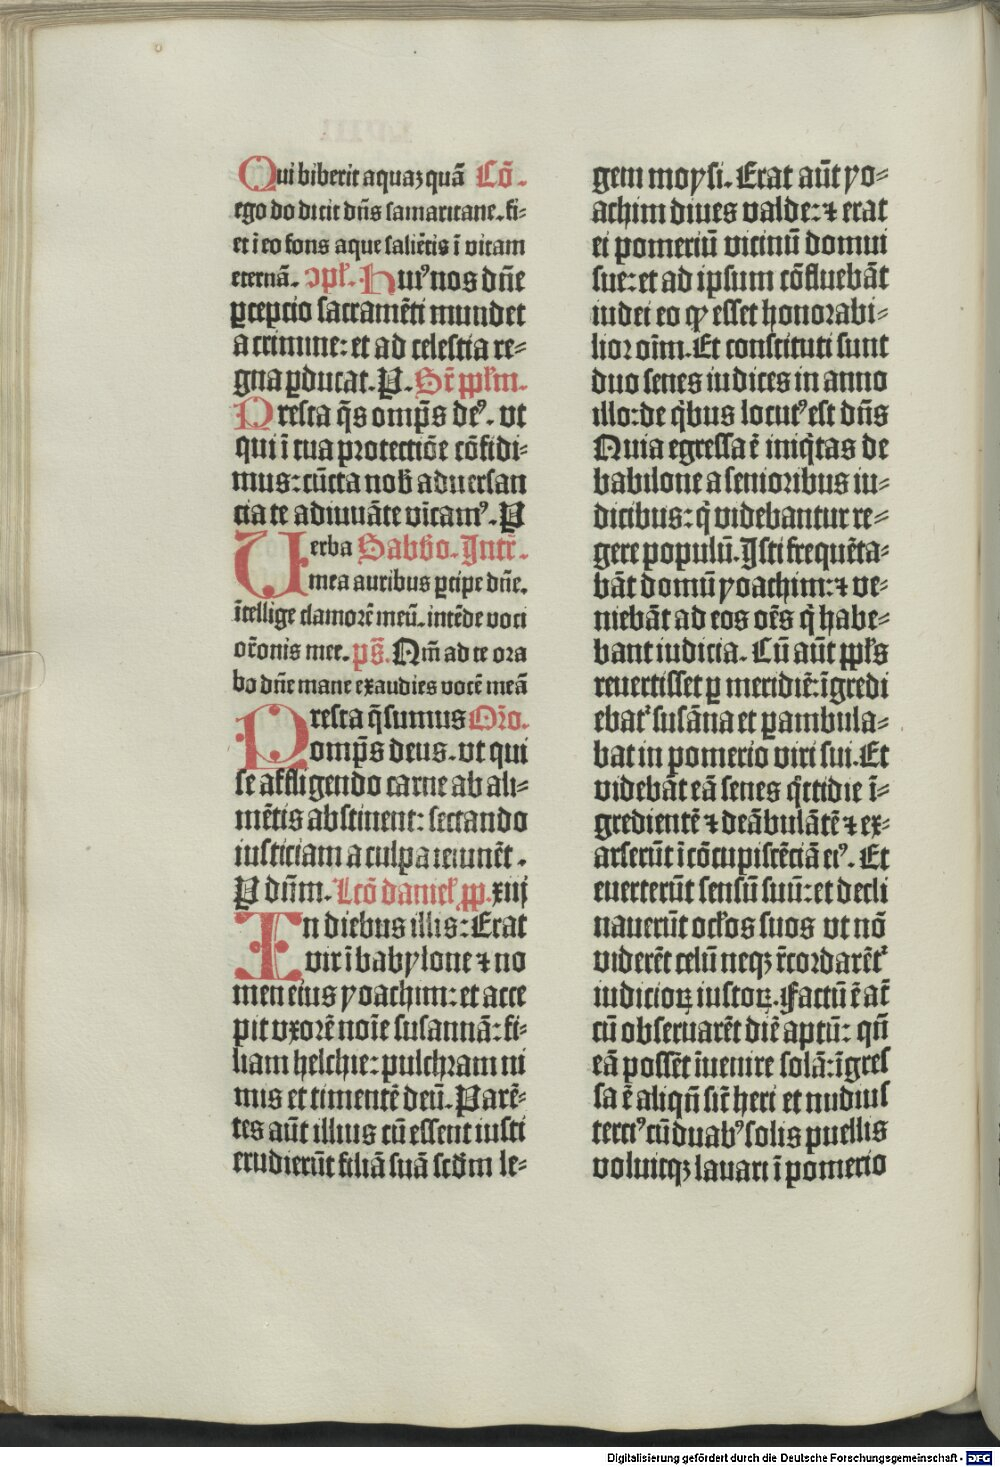 Qui biberit aquaꝫ quā Cō.
ego do dicit dn̄s samaritane. fi⸗
et ī eo fons aque saliētis ī vitam
eternā. ↄpl̄. Huiꝰ nos dn̄e
ꝑceptio sacramēti mundet
a crimine: et ad celestia re⸗
gna ꝑducat. P. Sr̄ ppl̄m.
Presta q̄s omp̄s deꝰ. vt
qui ī tua protectiōe cōfidi⸗
mus: cūcta nob̄ aduersan
cia te adiuuāte vīcamꝰ. P
Uerba Sabb̄o. Intr̄.
mea auribus ꝑcipe dn̄e.
ītellige clamorē meū. intēde voci
or̄onis mee. ps̄. Qm̄ ad te ora
bo dn̄e mane exaudies vocē meā
Presta q̄sumus Or̄o.
omp̄s deus. vt qui
se affligendo carne ab ali⸗
mētis abstinent: sectando
iusticiam a culpa ieiunēt.
P dn̄m. Lcō daniel̄ pp. xiij
In diebus illis: Erat
vir ī babylone ⁊ no
men eius yoachim: et acce
pit vxorē noīe susannā: fi⸗
liam helchie: pulchram ni
mis et timentē deū. Parē⸗
tes aūt illius cū essent iusti
erudierūt filiā suā scd̄m le⸗
gem moysi. Erat aūt yo⸗
achim diues valde: ⁊ erat
ei pomeriū vicinū domui
sue: et ad ipsum cōfluebāt
iudei eo ꝙ esset honorabi⸗
lior oīm. Et constituti sunt
duo senes iudices in anno
illo: de q̄bus locutꝰ est dn̄s
Quia egressa ē iniq̄tas de
babilone a senioribus iu⸗
dicibus: q̄ videbantur re⸗
gere populū. Isti frequēta⸗
bāt domū yoachim: ⁊ ve⸗
niebāt ad eos oēs q̄ habe⸗
bant iudicia. Cū aūt ppl̄s
reuertisset ꝑ meridiē: īgredi
ebatᷣ susāna et ꝑambula⸗
bat in pomerio viri sui. Et
videbāt eā senes q̄ttidie ī⸗
gredientē ⁊ deābulātē ⁊ ex⸗
arserūt ī cōcupiscēciā eiꝰ. Et
euerterūt sensū suū: et decli
nauerūt ocl̄os suos vt nō
viderēt celū neqꝫ r̄cordarētᷣ
iudicioꝝ iustoꝝ. Factū ē āt
cū obseruarēt diē aptū: qn̄
eā possēt īuenire solā: īgres
sa ē aliqn̄ sic̄ heri et nudius
terciꝰ cū duabꝰ solis puellis
voluitqꝫ lauari ī pomerio
Digitalisierung gefördert durch die Deutsche Forschungsgemeinschaft - DFG